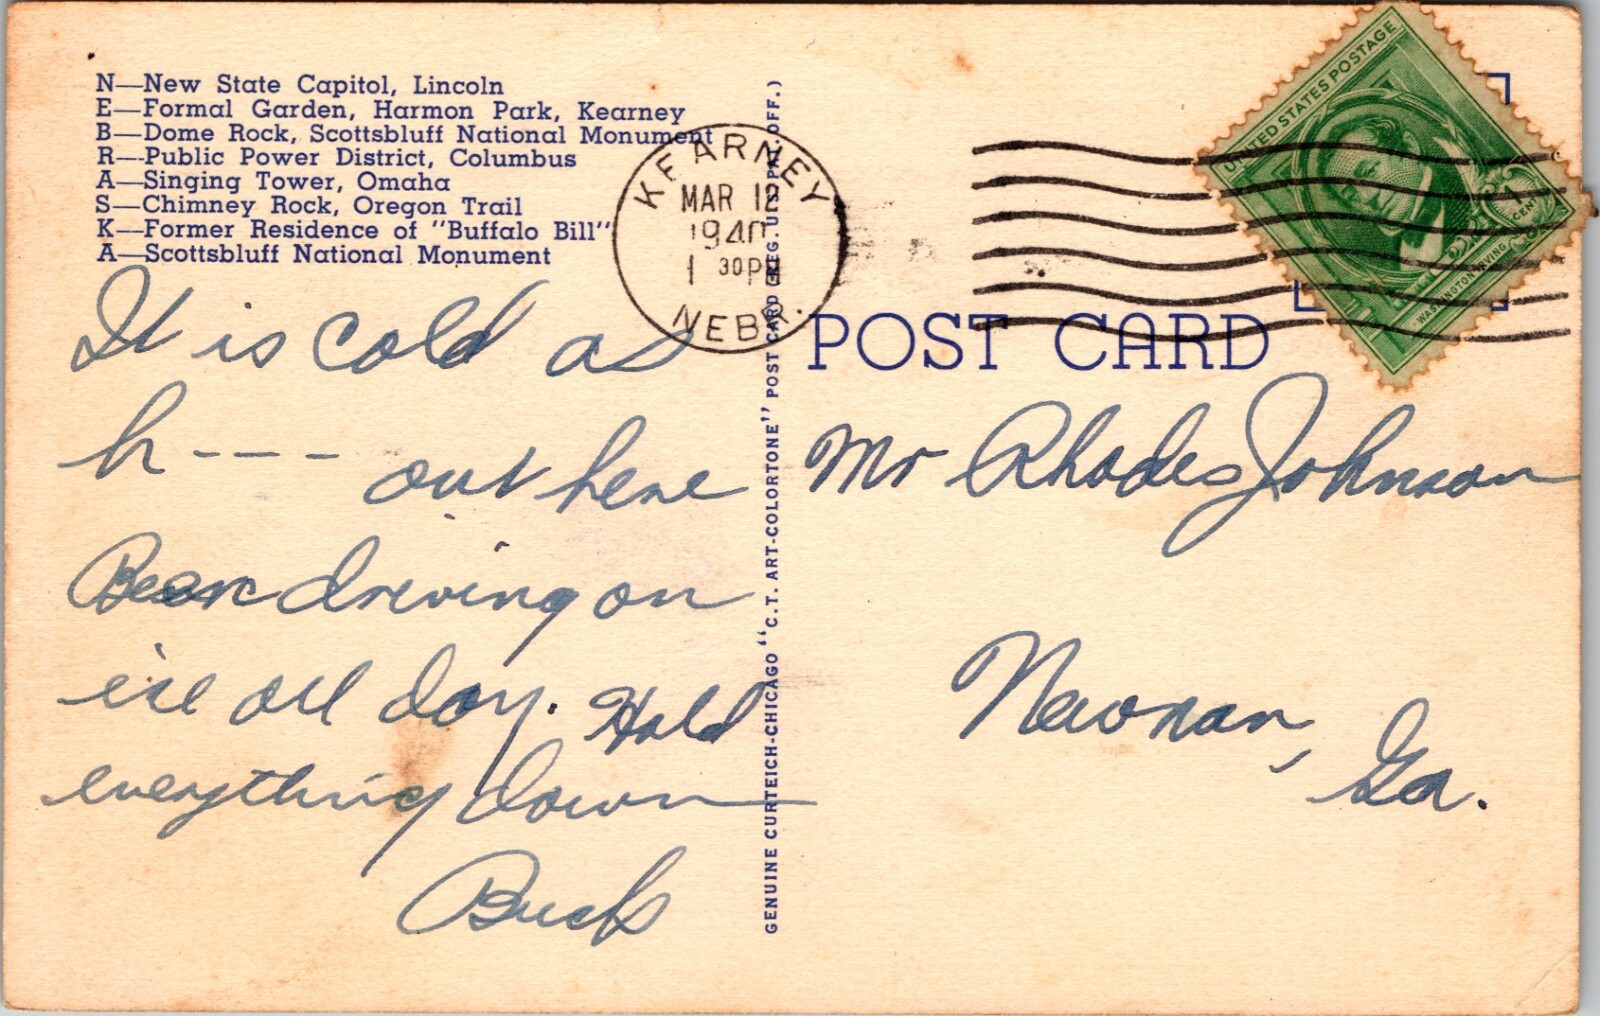 N—New State Capitol, Lincoln
E—Formal Garden, Harmon Park, Kearney
B—Dome Rock, Scottsbluff National Monument
R—Public Power District, Columbus
A—Singing Tower, Omaha
S—Chimney Rock, Oregon Trail
K—Former Residence of "Buffalo Bill"
A—Scottsbluff National Monument
It is cold as
h---- out here
Been driving on
ice all day. Hold
everything down
Buck
KEARNEY
MAR 12
1940
1 30PM
NEBR.
GENUINE CURTEICH-CHICAGO "C.T. ART-COLORTONE" POST CARD (REG. U.S. PAT. OFF.)
UNITED STATES POSTAGE
1 CENT
WASHINGTON IRVING
POST CARD
Mr Rhodes Johnson
Newnan,
Ga.